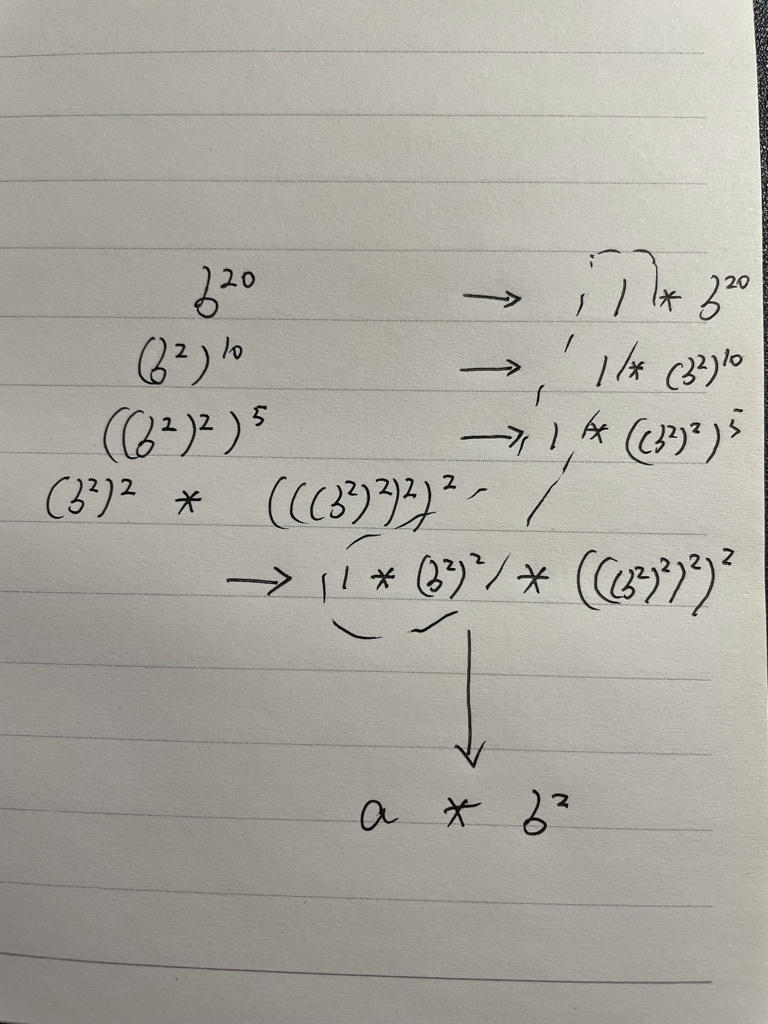 b²⁰ → 1 * b²⁰
(b²)¹⁰ → 1 * (b²)¹⁰
((b²)²)⁵ → 1 * ((b²)²)⁵
(b²)² * (((b²)²)²)²
→ 1 * (b²)² * (((b²)²)²)²
a * b²